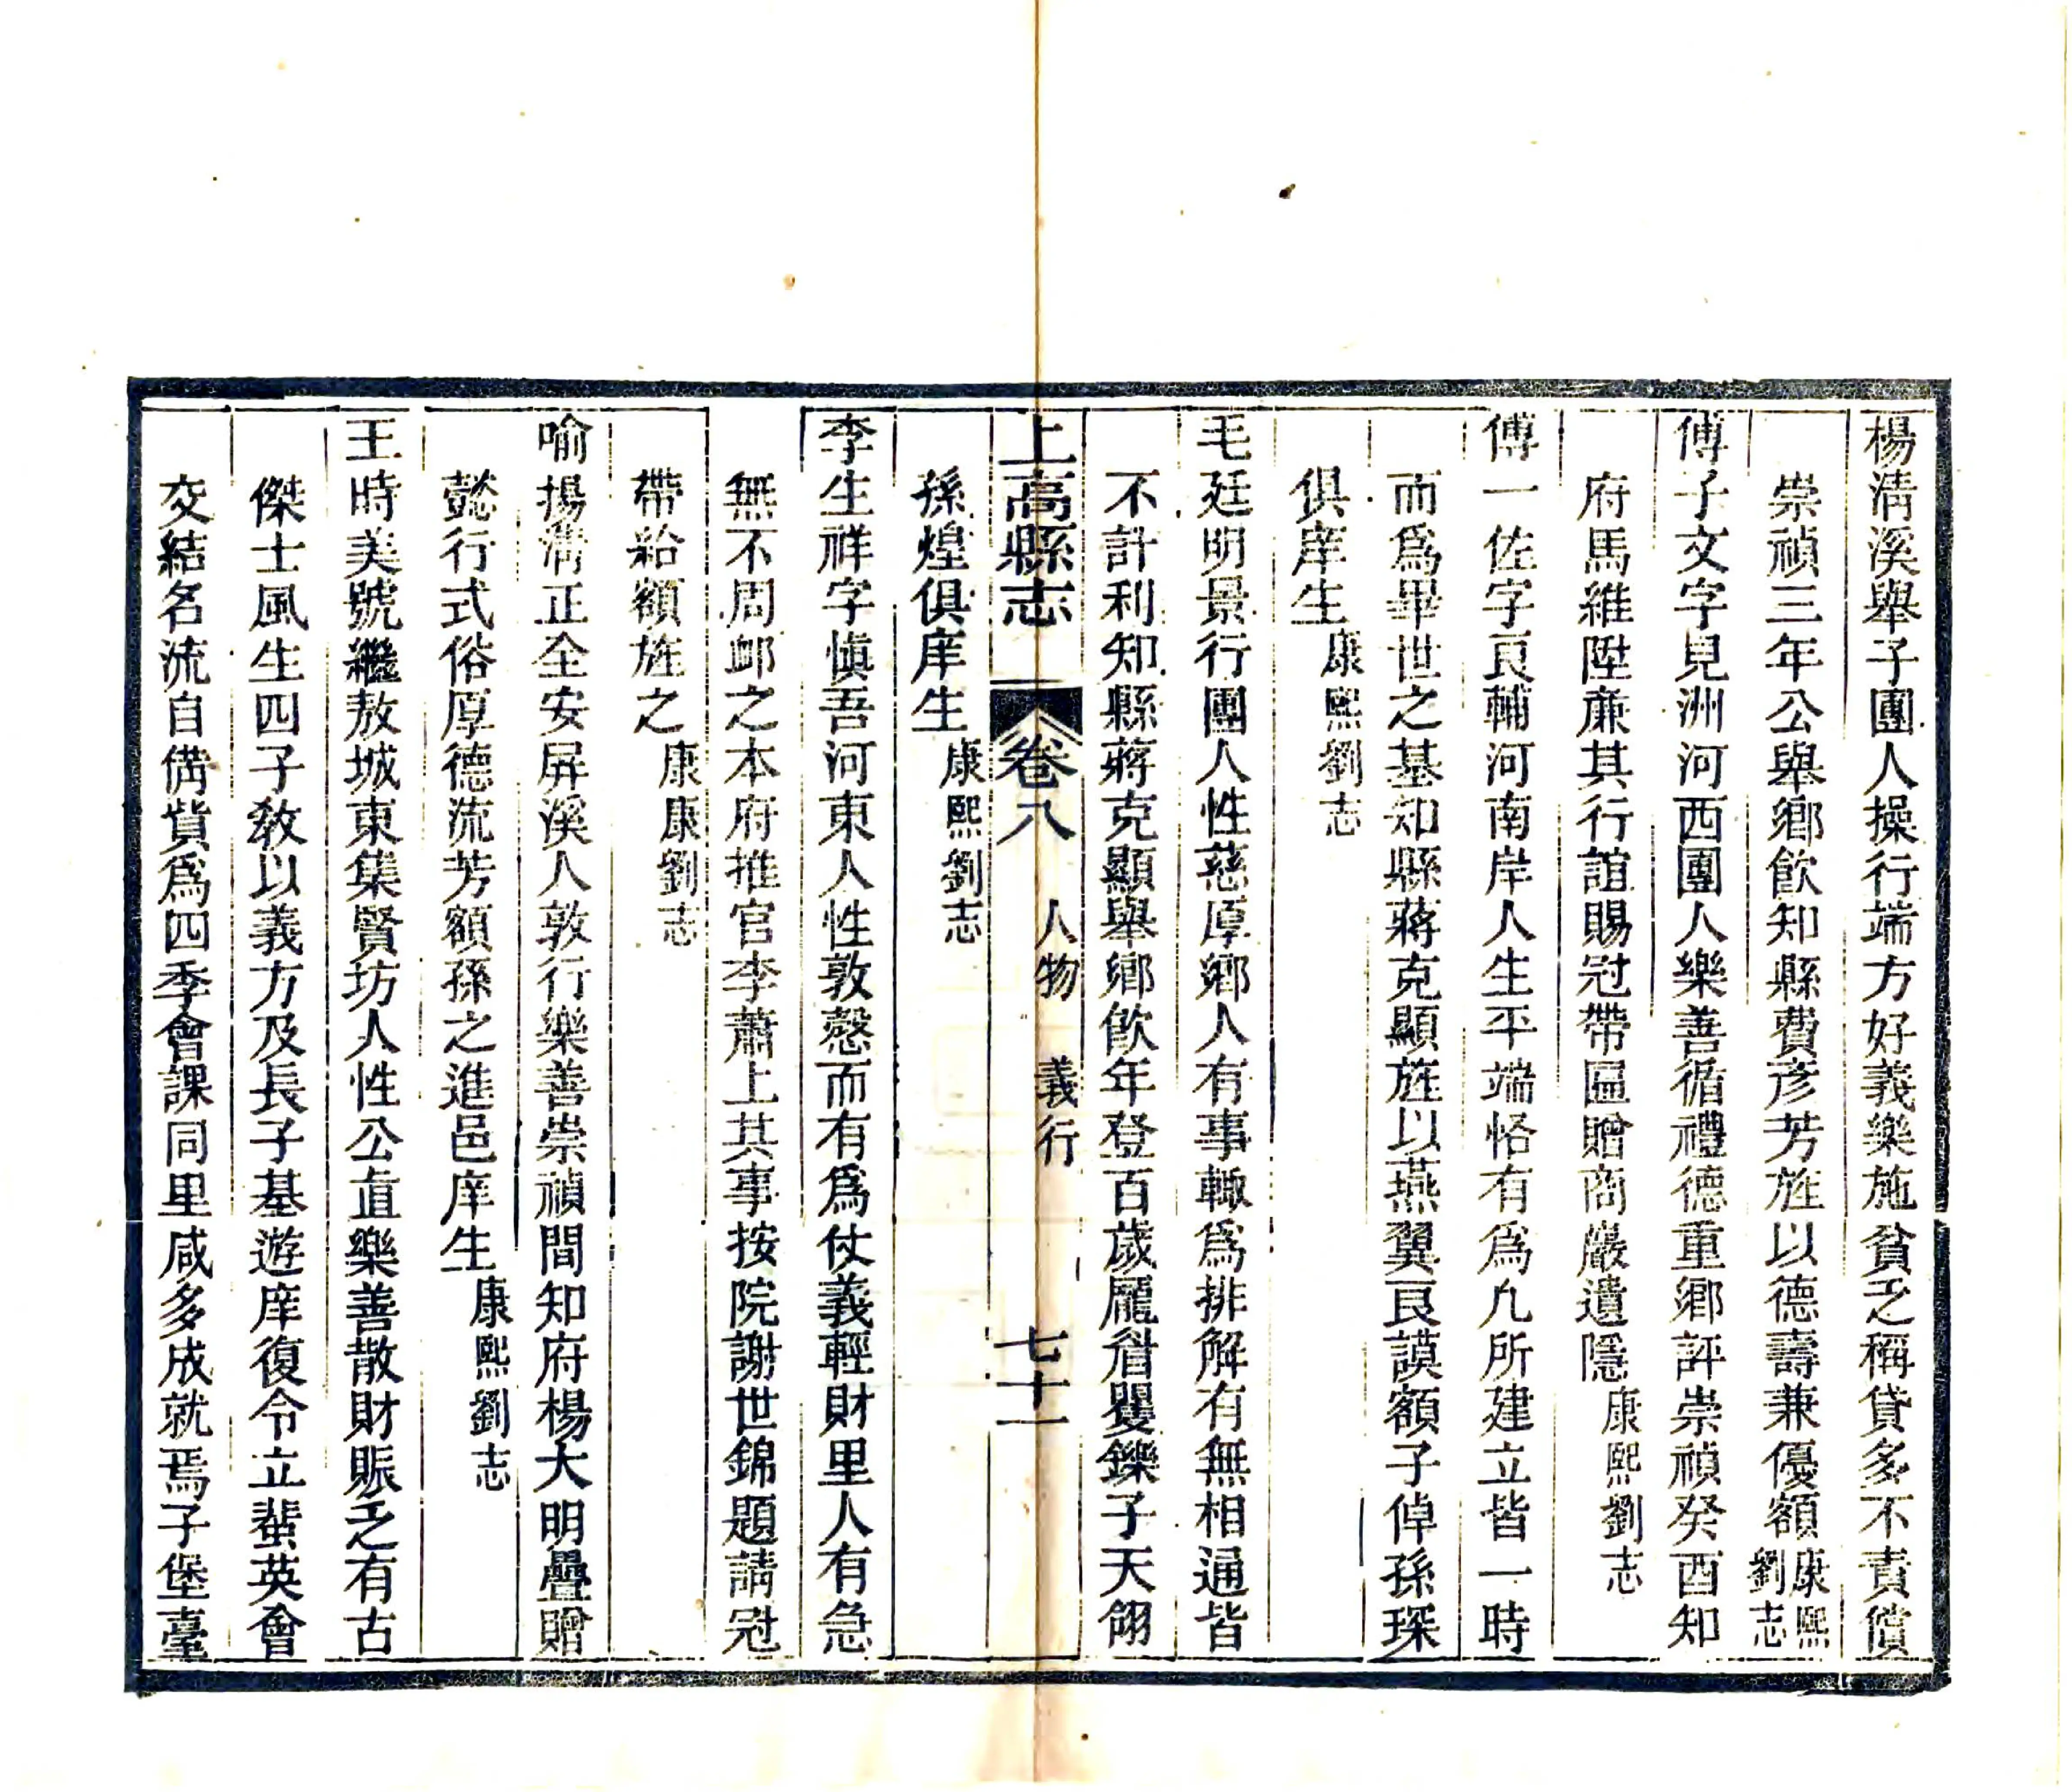 楊清溪舉子團人操行端方好義樂施貧乏稱貸多不責償
崇禎三年公舉鄉飲知縣費彥芳旌以德壽兼優額康熙劉志
傅子文字見洲河西團人樂善循禮德重鄉評崇禎癸酉知
府馬維陞廉其行誼賜冠帶匾贈商巖遺隱康熙劉志
傅一佐字良輔河南岸人生平端恪有爲凢所建立皆一時
而爲畢世之基知縣蔣克顯旌以燕翼良謨額子倬孫琛
俱庠生康熙劉志
毛廷明景行團人性慈厚鄉人有事輙爲排解有無相通皆
不計利知縣蔣克顯舉鄉飲年登百歲龐眉矍鑠子天翎
上高縣志 卷八 人物 義行 七十一
孫煌俱庠生康熙劉志
李生祥字愼吾河東人性敦慤而有爲仗義輕財里人有急
無不周卹之本府推官李蕭上其事按院謝世錦題請冠
帶給額旌之康康劉志
喻揚淸正全安屛溪人敦行樂善崇禎間知府楊大明疊贈
懿行式俗厚德流芳額孫之進邑庠生康熙劉志
王時美號繼敖城東集賢坊人性公直樂善散財賑乏有古
傑士風生四子敎以義方及長子基遊庠復令立蜚英會
交結名流自備貲爲四季會課同里咸多成就焉子堡臺